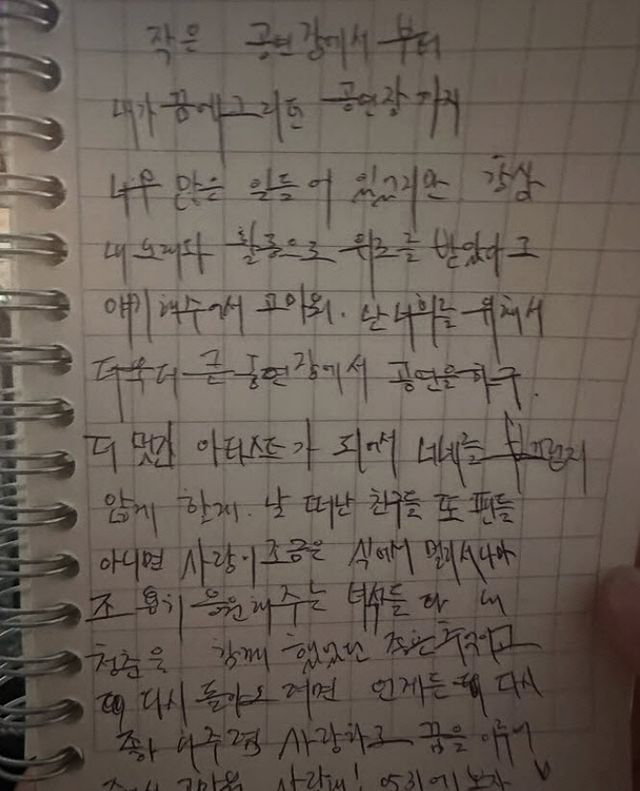 작은 공연장에서 부터
내가 꿈에 그리던 공연장 까지
너무 많은 일들이 있었지만 항상
내 노래와 활동으로 위로를 받았다고
얘기해주어서 고마워. 난 너희를 위해서
더욱더 큰 공연장에서 공연을 하구.
더 멋진 아티스트가 되어서 너네를
않게 할게. 날 떠난 친구들 또 팬들
아니면 사랑이 조금은 식어서 멀리서나마
조용히 응원해주는 녀석들 다 내
청춘을 함께 했었던 좋은 추억이고
다시 돌아오려면 언제든 다시
좋아해주렴 사랑하고 꿈을 이루어
고마워 사랑해! 에 보자